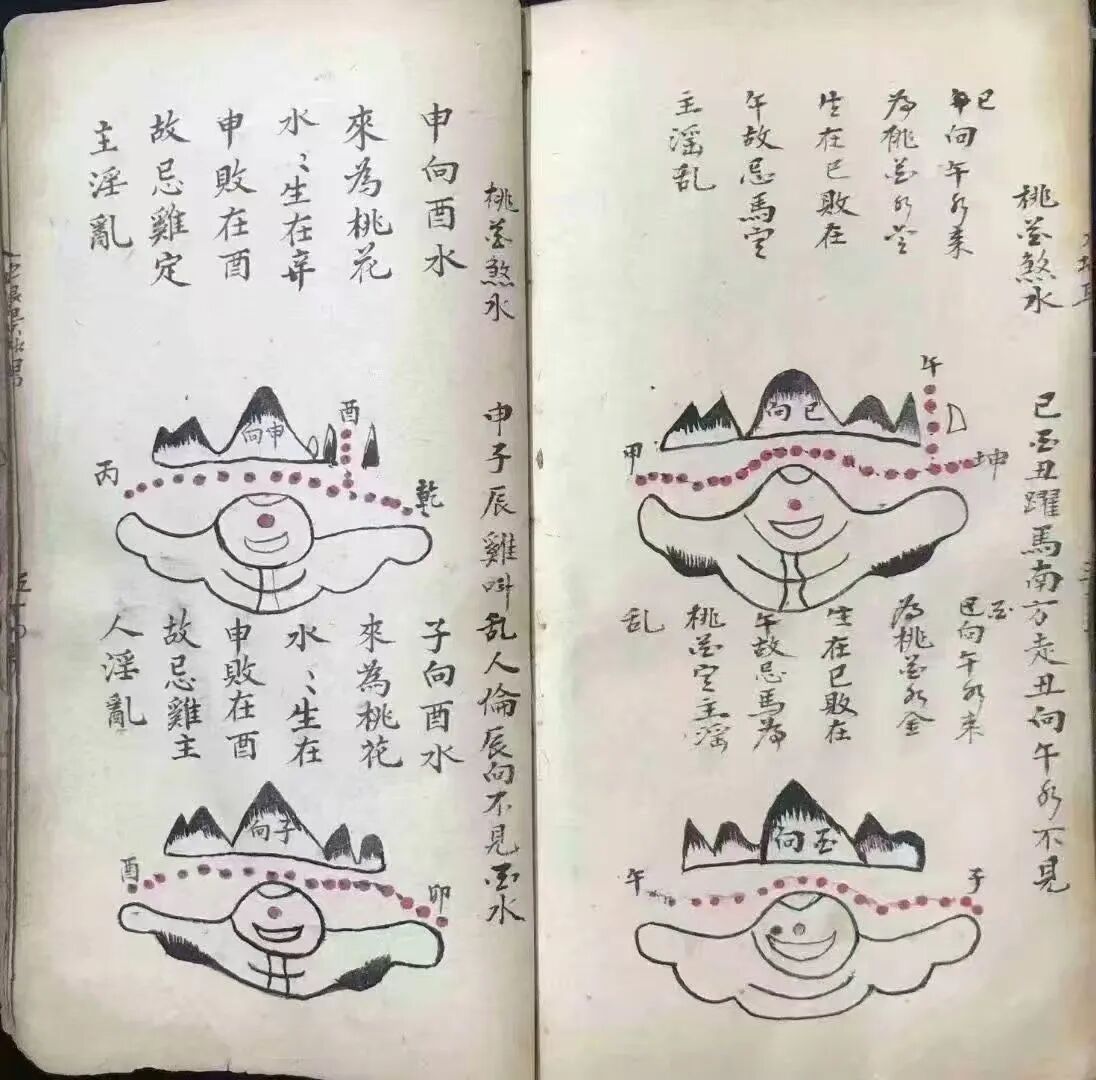 桃花煞水
巳酉丑躍馬南方走丑向午水不見
巳向午水來
為桃花水金
生在巳敗在
午故忌馬定
主淫乱
午
向巳
甲
坤
酉向午水來
為桃花水金
生在巳敗在
午故忌馬為
桃花定主淫
乱
向酉
午
子
桃花煞水
申子辰雞叫乱人倫辰向不見酉水
申向酉水
來為桃花
水〻生在
申敗在酉
故忌雞定
主淫亂
酉
向申
丙
乾
子向酉水
來為桃花
水〻生在
申敗在酉
故忌雞主
人淫亂
向子
酉
卯